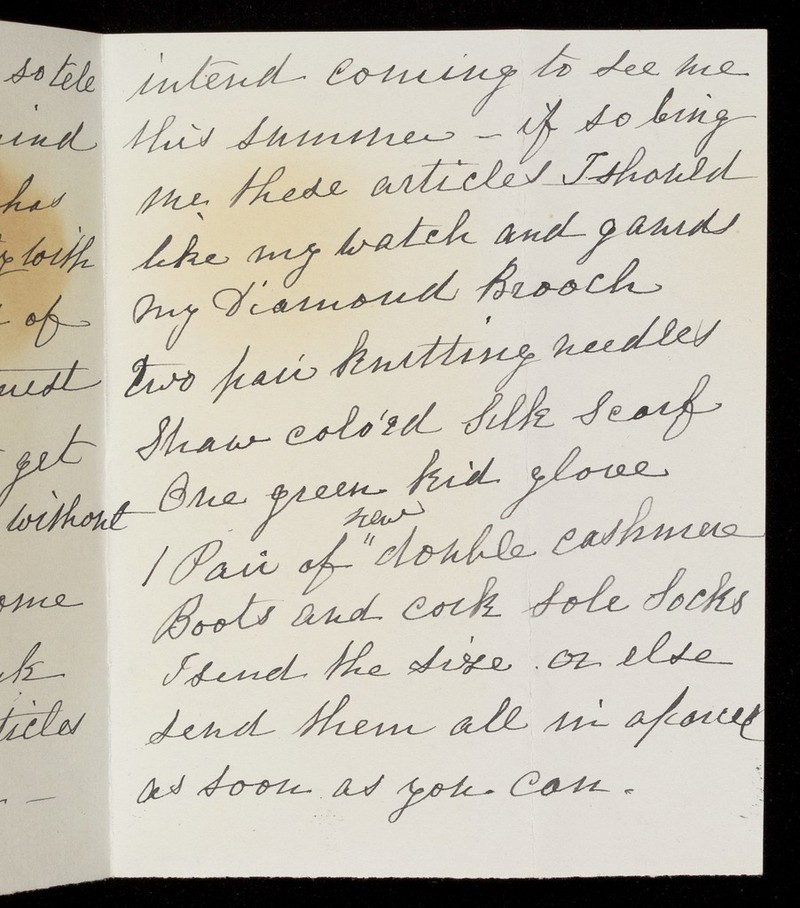 so tele
ind
has
with
of
uest
get
without
ome
k
ticles
intend coming to see me
this summer – if so bring
me these articles I should
like my watch and gaurds
my Diamond Brooch
two pair knitting needles
Straw colo'ed Silk Scarf
One green kid glove
new
1 Pair of " double cashmere
Boots and cork sole Socks
I send the size or else
send them all in a parcel
as soon as you can.